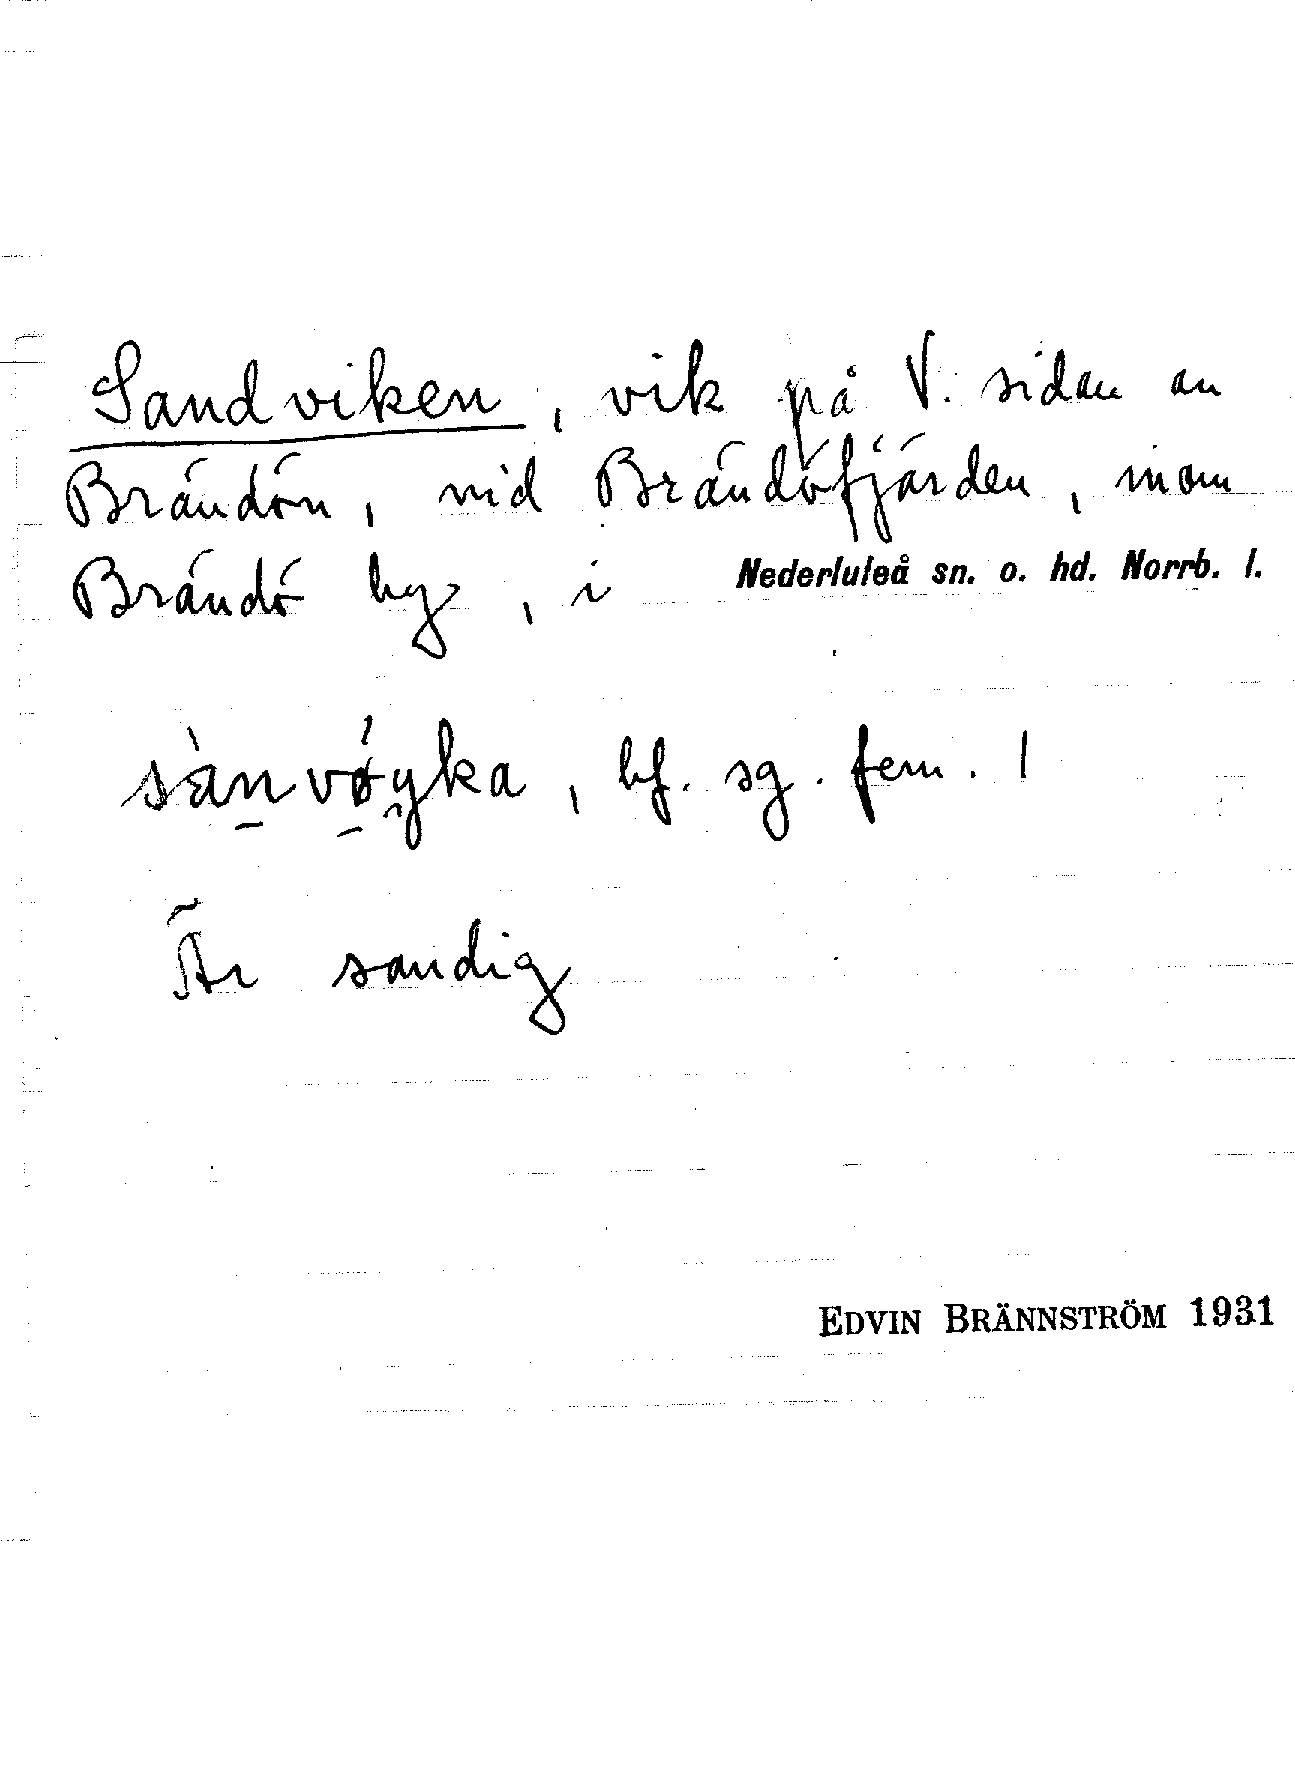 Sandviken, vik på V. sidan av
Brändön, vid Brändöfjärden, inom
Brändö by, i Nederluleå sn. o. hd. Norrb. l.
sànvǿyka, bf. sg. fem. |
Är sandig
EDVIN BRÄNNSTRÖM 1931